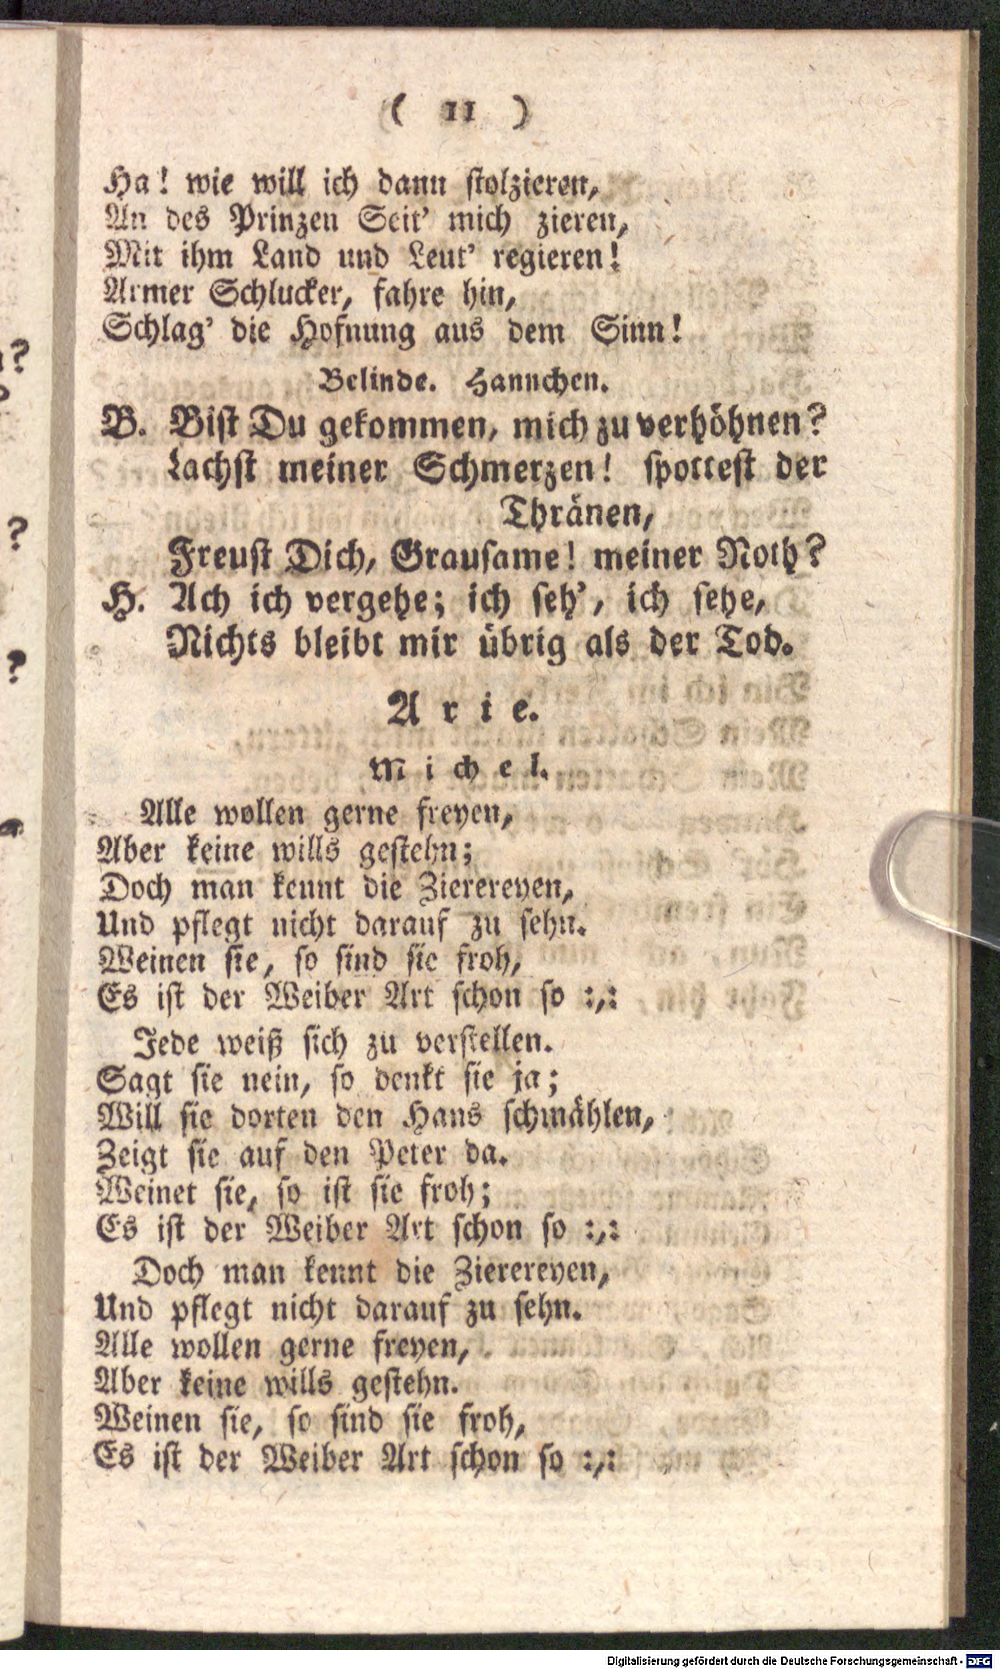 ( 11 )
Ha! wie will ich dann stolzieren,
An des Prinzen Seit' mich zieren,
Mit ihm Land und Leut' regieren!
Armer Schlucker, fahre hin,
Schlag' die Hofnung aus dem Sinn!
Belinde. Hannchen.
B. Bist Du gekommen, mich zu verhöhnen?
Lachst meiner Schmerzen! spottest der
Thränen,
Freust Dich, Grausame! meiner Noth?
H. Ach ich vergehe; ich seh', ich sehe,
Nichts bleibt mir übrig als der Tod.
Arie.
Michel.
Alle wollen gerne freyen,
Aber keine wills gestehn;
Doch man kennt die Zierereyen,
Und pflegt nicht darauf zu sehn.
Weinen sie, so sind sie froh,
Es ist der Weiber Art schon so :,:
Jede weiß sich zu verstellen.
Sagt sie nein, so denkt sie ja;
Will sie dorten den Hans schmählen,
Zeigt sie auf den Peter da.
Weinet sie, so ist sie froh;
Es ist der Weiber Art schon so :,:
Doch man kennt die Zierereyen,
Und pflegt nicht darauf zu sehn.
Alle wollen gerne freyen,
Aber keine wills gestehn.
Weinen sie, so sind sie froh,
Es ist der Weiber Art schon so :,:
Digitalisierung gefördert durch die Deutsche Forschungsgemeinschaft - DFG